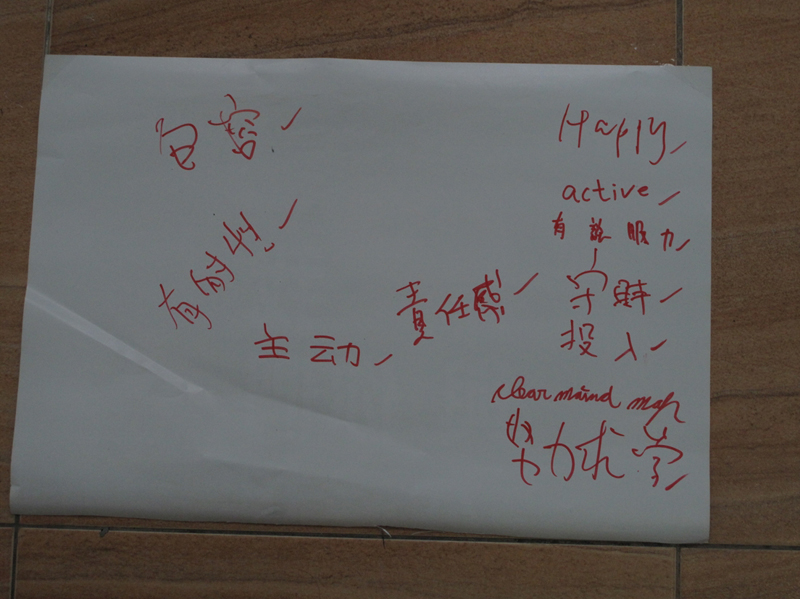 包容
Happy
active
有說服力
有耐性
責任感
守時
投入
主动
clear maind map
努力求学